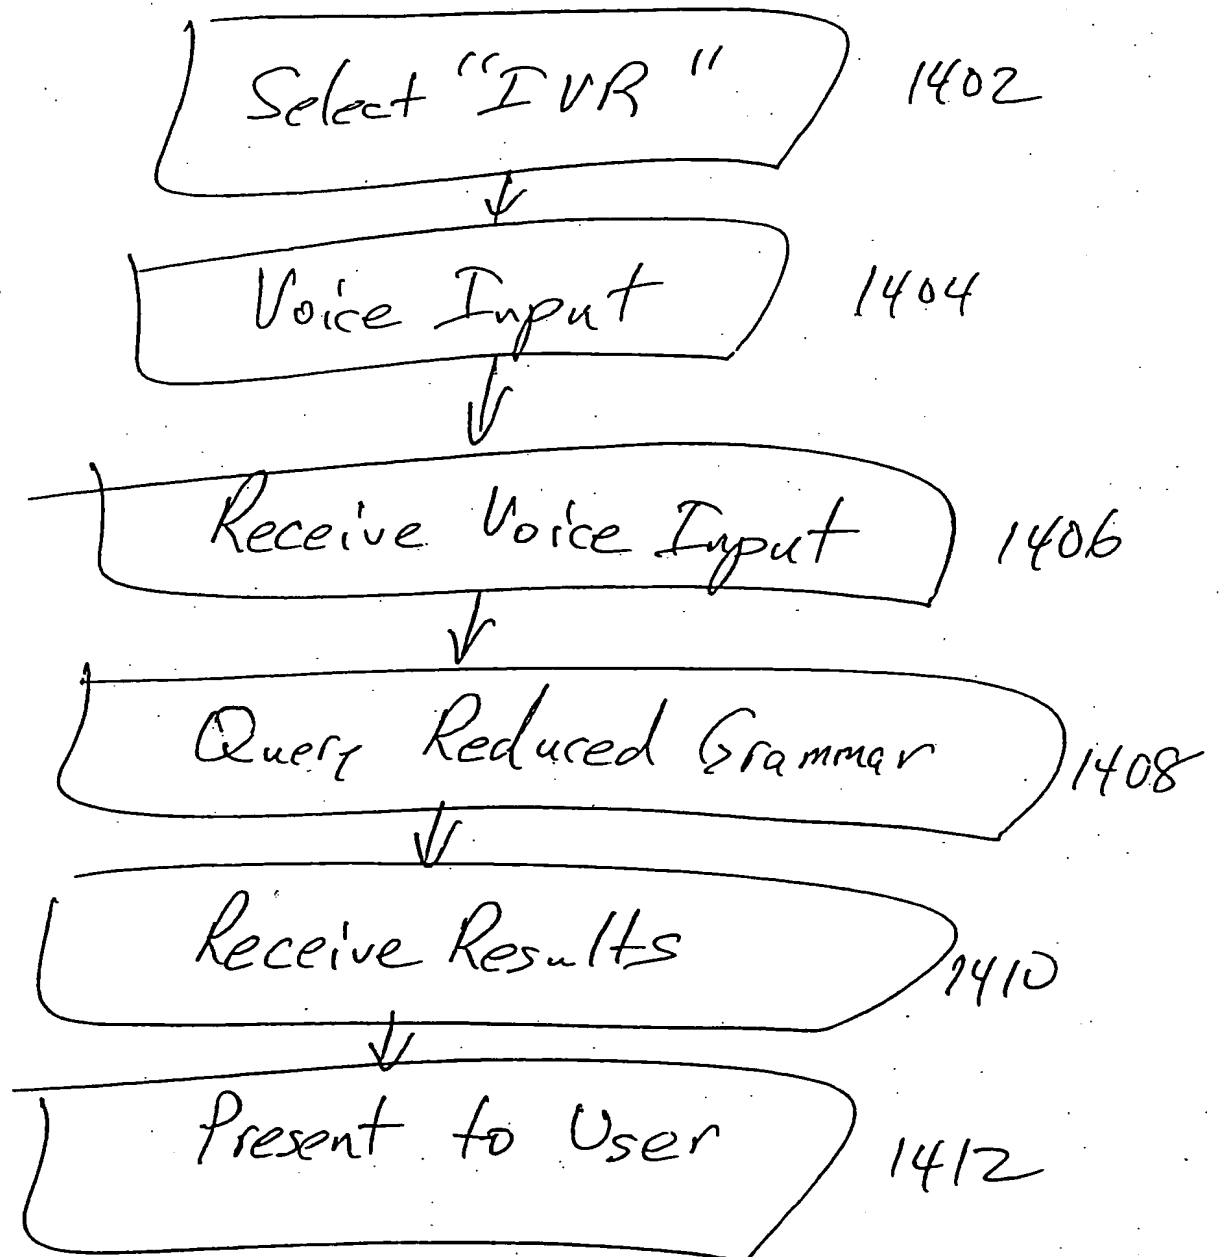 Select "IVR" 1402
Voice Input 1404
Receive Voice Input 1406
Query Reduced Grammar 1408
Receive Results 1410
Present to User 1412